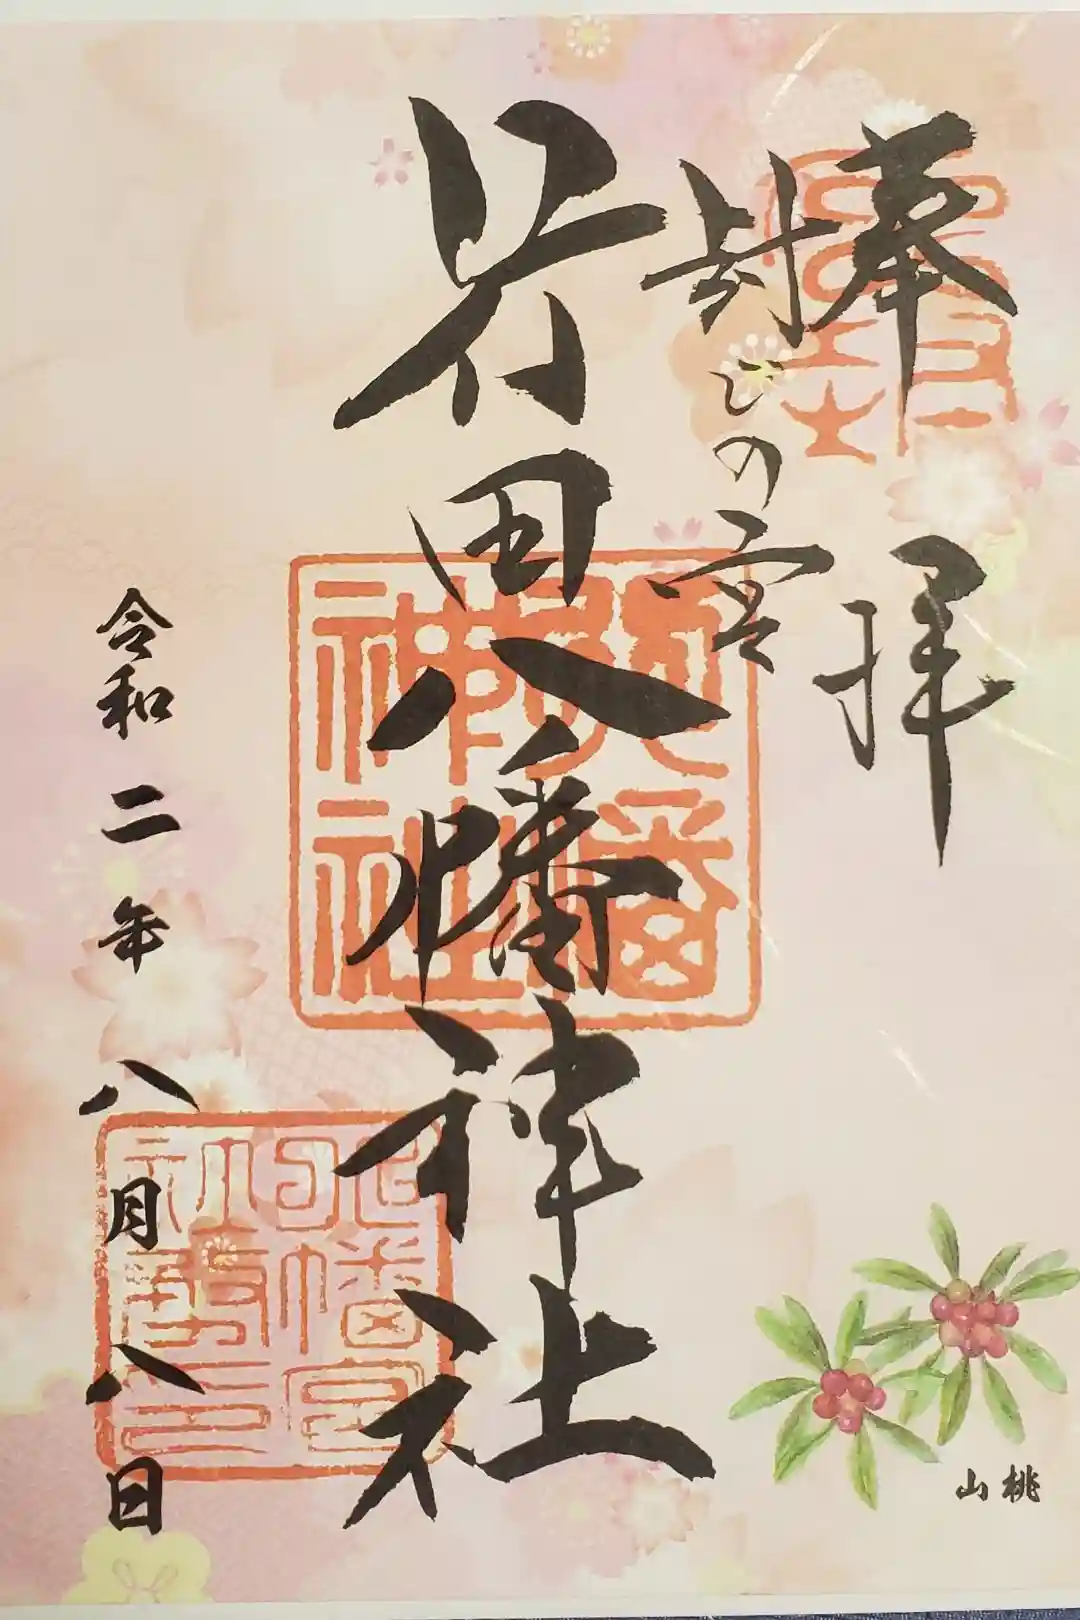 奉拝
封じの宮
行田八幡神社
令和二年八月八日
山桃